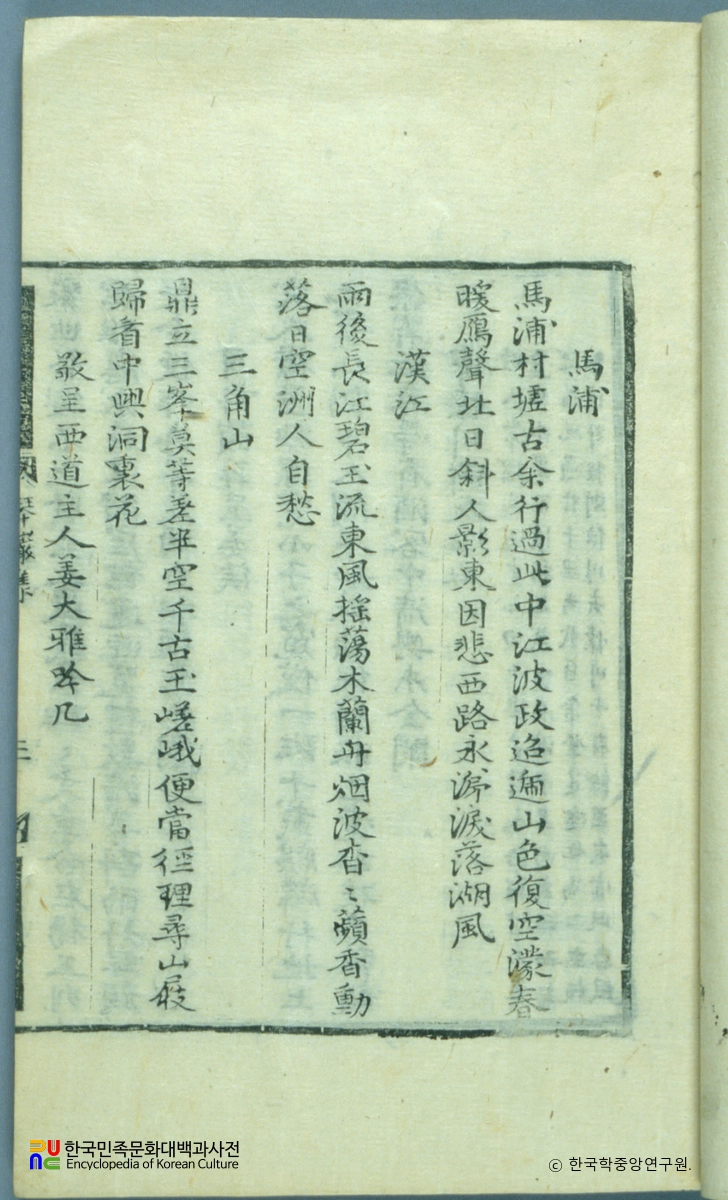 馬浦
馬浦村墟古余行過此中江波政迢遞山色復空濛春
暖鴈聲北日斜人影東因悲西路永涕淚落湖風
漢江
雨後長江碧玉流東風搖蕩木蘭舟烟波杳〻蘋香動
落日空洲人自愁
三角山
鼎立三峯莫等差半空千古玉嵯峨便當徑理尋山屐
歸看中興洞裏花
敬呈西道主人姜大雅吟几
한국민족문화대백과사전
Encyclopedia of Korean Culture
ⓒ 한국학중앙연구원.